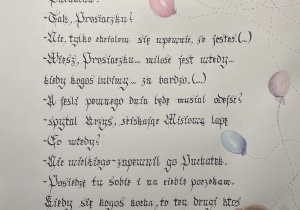 Puchatku.
-Tak, Prosiaczku?
-Nic, tylko chciałem się upewnić, że jesteś.(...)
-Wiesz, Prosiaczku... miłość jest wtedy...
kiedy kogoś lubimy... za bardzo.(...)
-A jeśli pewnego dnia będę musiał odejść?
-spytał Krzyś, ściskając Misiową łapę
-Co wtedy?
-Nic wielkiego-zapewnił go Puchatek.
-Posiedzę tu sobie i na ciebie poczekam.
Kiedy się kogoś kocha, to ten drugi ktoś